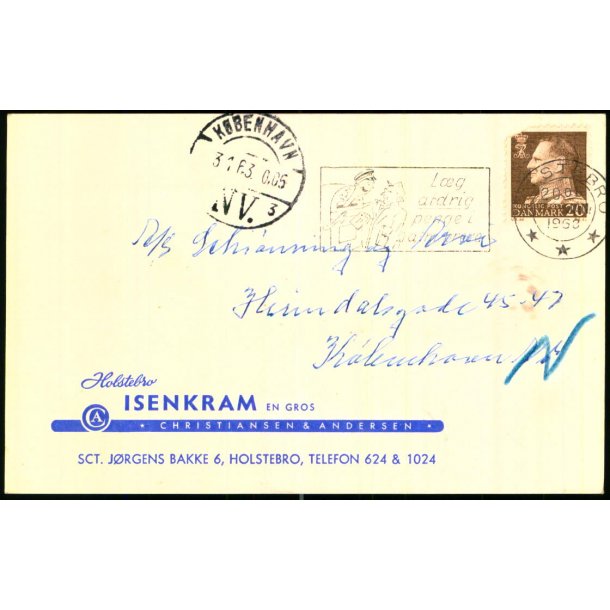 KØBENHAVN
3 1 63. 0.05
NV. 3
Læg
aldrig
penge i
KONGELIG POST
DANMARK 20
1963
Heimdalsgade 45-47
København
Holstebro
ISENKRAM EN GROS
CA
* CHRISTIANSEN & ANDERSEN *
SCT. JØRGENS BAKKE 6, HOLSTEBRO, TELEFON 624 & 1024